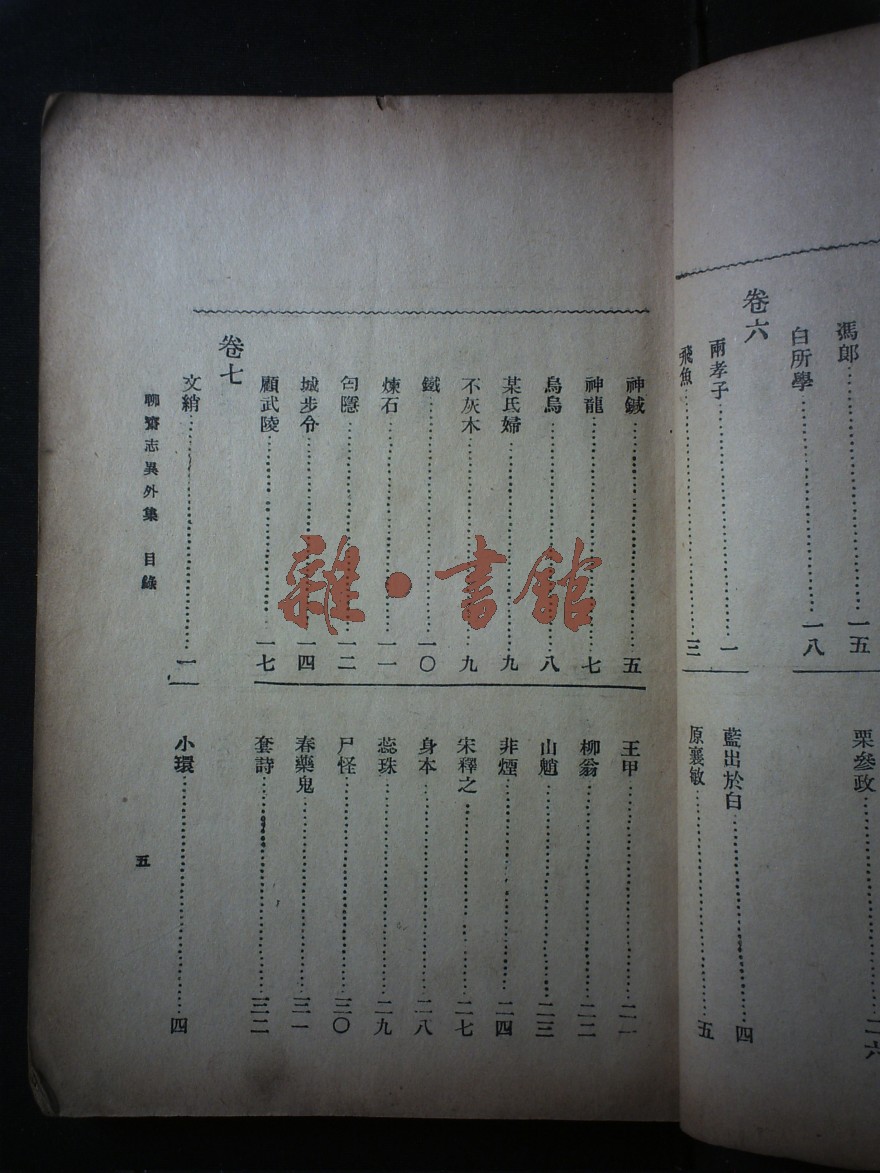 馮郎…………一五
白所學…………一八
栗參政…………二六
卷六
兩孝子…………一
飛魚…………三
藍出於白…………四
原襄敏…………五
神鍼…………五
神龍…………七
烏烏…………八
某氏婦…………九
不灰木…………九
鐵…………一〇
煉石…………一一
匄隱…………一二
城步令…………一四
顧武陵…………一七
王甲…………二一
柳翁…………二二
山魈…………二三
非煙…………二四
宋釋之…………二七
身本…………二八
蕊珠…………二九
尸怪…………三〇
春藥鬼…………三一
套詩…………三二
卷七
文綃…………一
小環…………四
聊齋志異外集 目錄
五
雜·書館